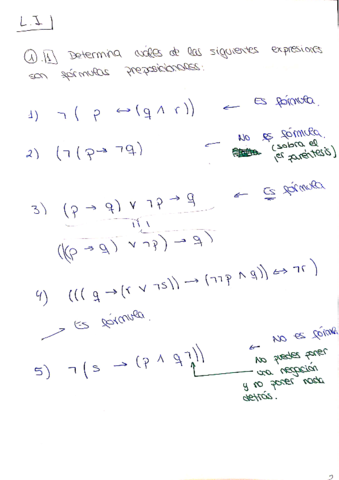 L.I
① 1 Determina cuáles de las siguientes expresiones
son fórmulas preposicionales:
1) ¬( p ↔ (q ∧ r)) ← Es fórmula.
2) (¬(p → ¬q) ← No es fórmula.
(sobra el
1er paréntesis)
3) (p → q) ∨ ¬p → q ← Es fórmula
(((p → q) ∨ ¬p) → q)
4) ((( q → (r ∨ ¬s)) → (¬¬p ∧ q)) ↔ ¬r)
→ Es fórmula.
5) ¬(s → (p ∧ q¬)) ← No es fórmula.
No puedes poner
una negación
y no poner nada
detrás.